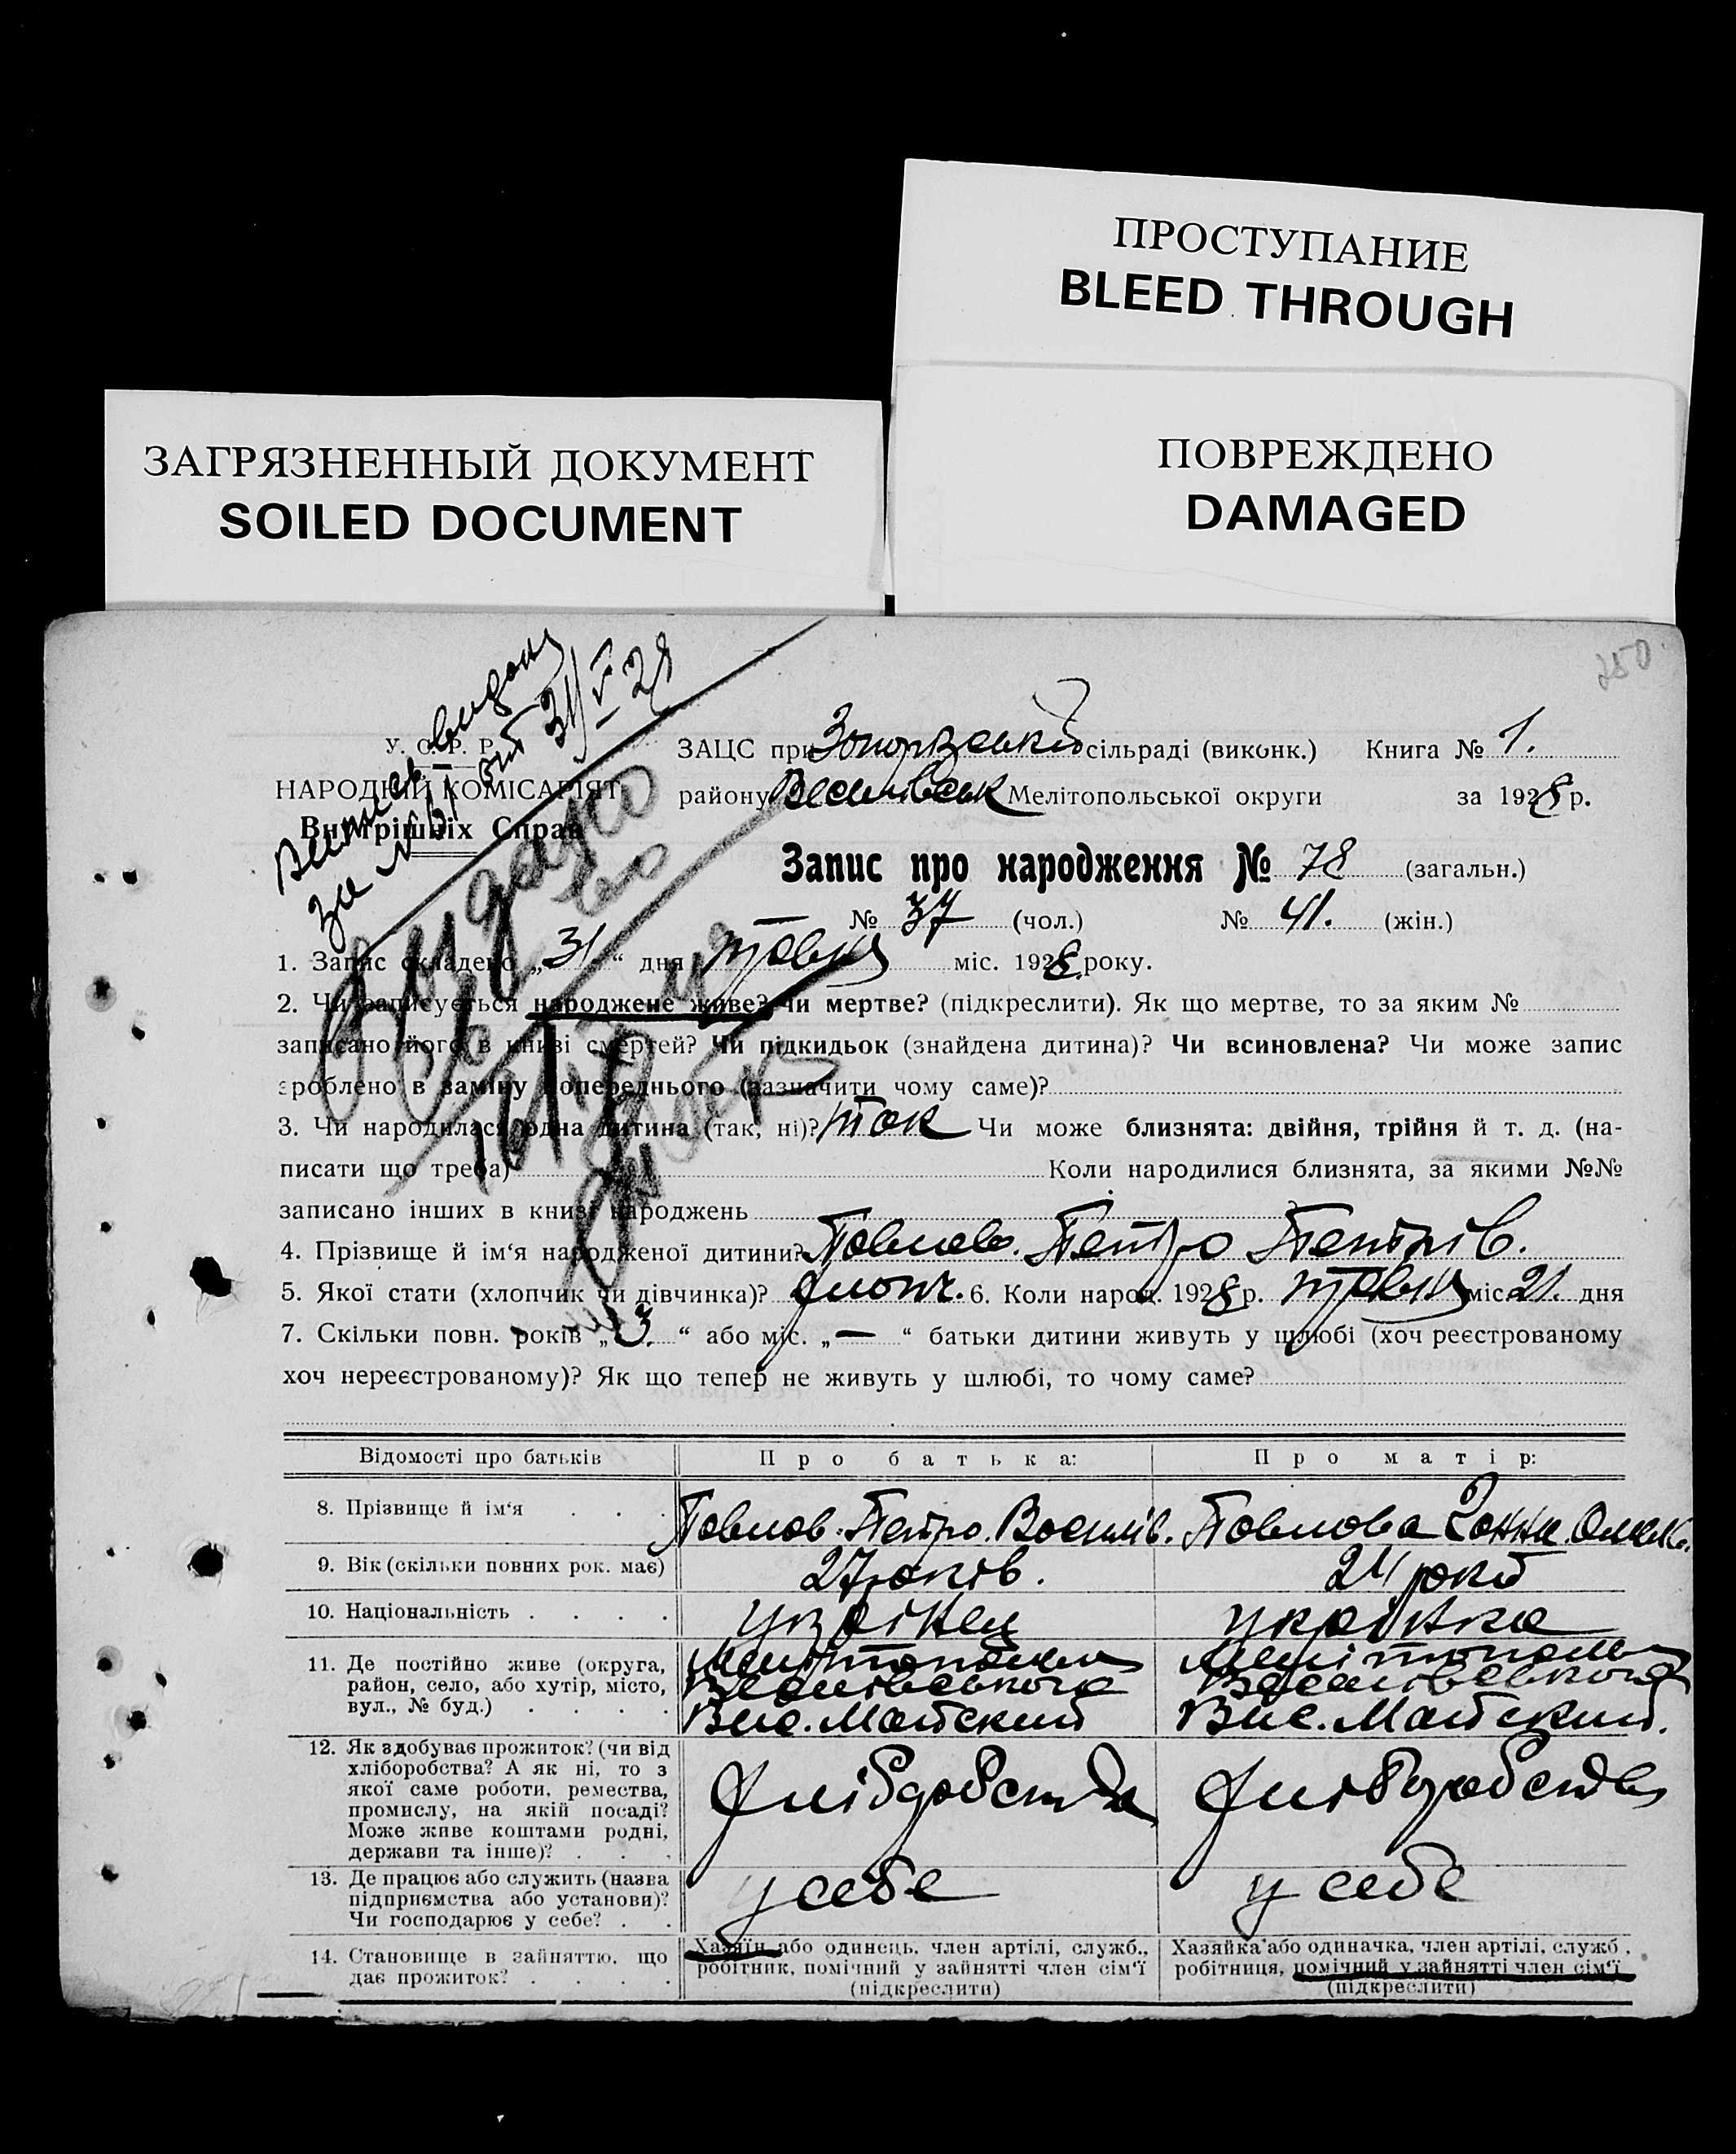 ПРОСТУПАНИЕ
BLEED THROUGH
ЗАГРЯЗНЕННЫЙ ДОКУМЕНТ
SOILED DOCUMENT
ПОВРЕЖДЕНО
DAMAGED
250
Виписъ видана
за № 31/V 28
У. С. Р. Р.
НАРОДНІЙ КОМІСАРІЯТ
Внутрішніх Справ
ЗАЦС при сільраді (виконк.) Книга № 1.
району Веселівськ Мелітопольської округи за 1928 р.
Запис про народження № 78 (загальн.)
№ 37 (чол.) № 41. (жін.)
1. Запис складено „31“ дня травня міс. 1928 року.
2. Чи записується народжене живе? Чи мертве? (підкреслити). Як що мертве, то за яким №
записано його в книзі смертей? Чи підкидьок (знайдена дитина)? Чи всиновлена? Чи може запис
зроблено в заміну попереднього (зазначити чому саме)?
3. Чи народилася одна дитина (так, ні)? так Чи може близнята: двійня, трійня й т. д. (на-
писати що треба) Коли народилися близнята, за якими №№
записано інших в книзі народжень
4. Прізвище й ім‘я народженої дитини? Павлов. Петро Петрів.
5. Якої стати (хлопчик чи дівчинка)? хлопч. 6. Коли народ. 1928 р. травня міс. 21. дня
7. Скільки повн. років „3.“ або міс. „—“ батьки дитини живуть у шлюбі (хоч реєстрованому
хоч нереєстрованому)? Як що тепер не живуть у шлюбі, то чому саме?
Відомості про батьків Про батька: Про матір:
8. Прізвище й ім‘я . . . Павлов. Петро. Василів. Павлова Ганна.
9. Вік (скільки повних рок. має) 27 років. 24 роки
10. Національність . . . . українец українка
11. Де постійно живе (округа,
район, село, або хутір, місто,
вул., № буд.) . . . .
Мелітопольськ
Веселівського
Вис. Майский
Мелітополь
Веселівського
Вис. Майский.
12. Як здобуває прожиток? (чи від
хліборобства? А як ні, то з
якої саме роботи, ремества,
промислу, на якій посаді?
Може живе коштами родні,
держави та інше)? . . .
хліборобства хліборобства
13. Де працює або служить (назва
підприємства або установи)?
Чи господарює у себе? . .
у себе у себе
14. Становище в зайняттю, що
дає прожиток? . . . .
Хазяїн або одинець, член артілі, служб.,
робітник, помічний у зайнятті член сім‘ї
(підкреслити)
Хазяйка або одиначка, член артілі, служб.,
робітниця, помічний у зайнятті член сім‘ї
(підкреслити)